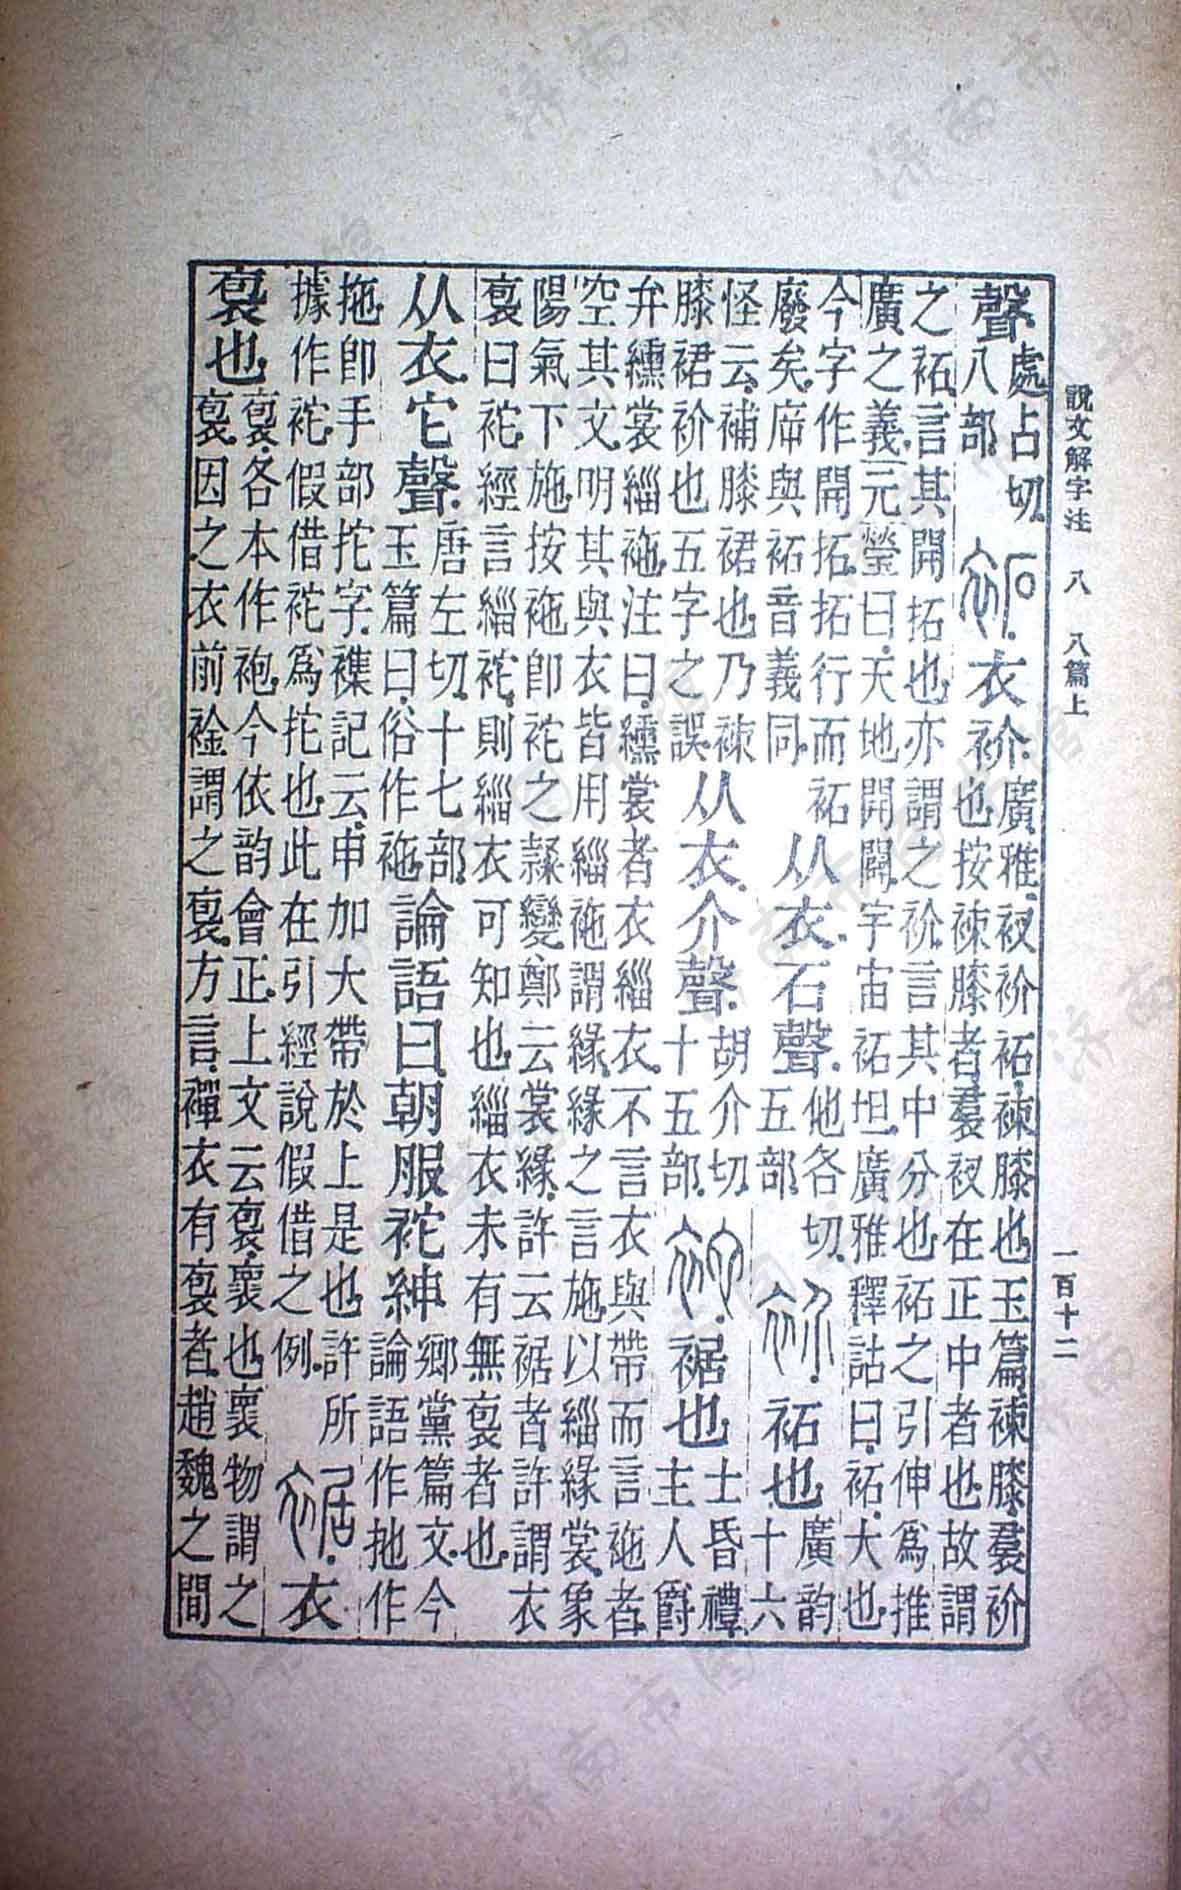 聲。
處占切。
八部。
袥
衣衸。
廣雅。衩衸袥。䙱膝也。玉篇。䙱膝。帬衸
也。按䙱膝者。帬衩在正中者也。故謂
之袥。言其開拓也。亦謂之衸。言其中分也。袥之引伸爲推
廣之義。元瑩曰。天地開闢。宇宙袥坦。廣雅釋詁曰。袥。大也。
今字作開拓。拓行而袥
廢矣。㡿與袥音義同。
从衣。石聲。
他各切。
五部。
衸
袥也。
廣韵
十六
怪云。補膝裙也。乃䙱
膝裙衸也五字之誤。
从衣。介聲。
胡介切。
十五部。
袉
裾也。
士昏禮。
主人爵
弁纁裳緇袘。注曰。纁裳者衣緇衣。不言衣與帶而言袘者。
空其文。明其與衣皆用緇。袘謂緣。緣之言施。以緇緣裳。象
陽氣下施。按袘卽袉之隸變。鄭云裳緣。許云裾者。許謂衣
袌曰袉。經言緇袉。則緇衣可知也。緇衣未有無袌者也。
从衣。它聲。
唐左切。十七部。
玉篇曰。俗作袘。
論語曰。朝服袉紳。
鄉黨篇文。今
論語作拖。作
拖。卽手部拕字。襍記云。申加大帶於上是也。許所
據作袉。假借袉爲拕也。此在引經說假借之例。
裾
衣
袌也。
袌。各本作袍。今依韵會正。上文云袌。褱也。褱物謂之
袌。因之衣前襝謂之袌。方言。襌衣有袌者。趙魏之間
說文解字注　八　八篇上
一百十二